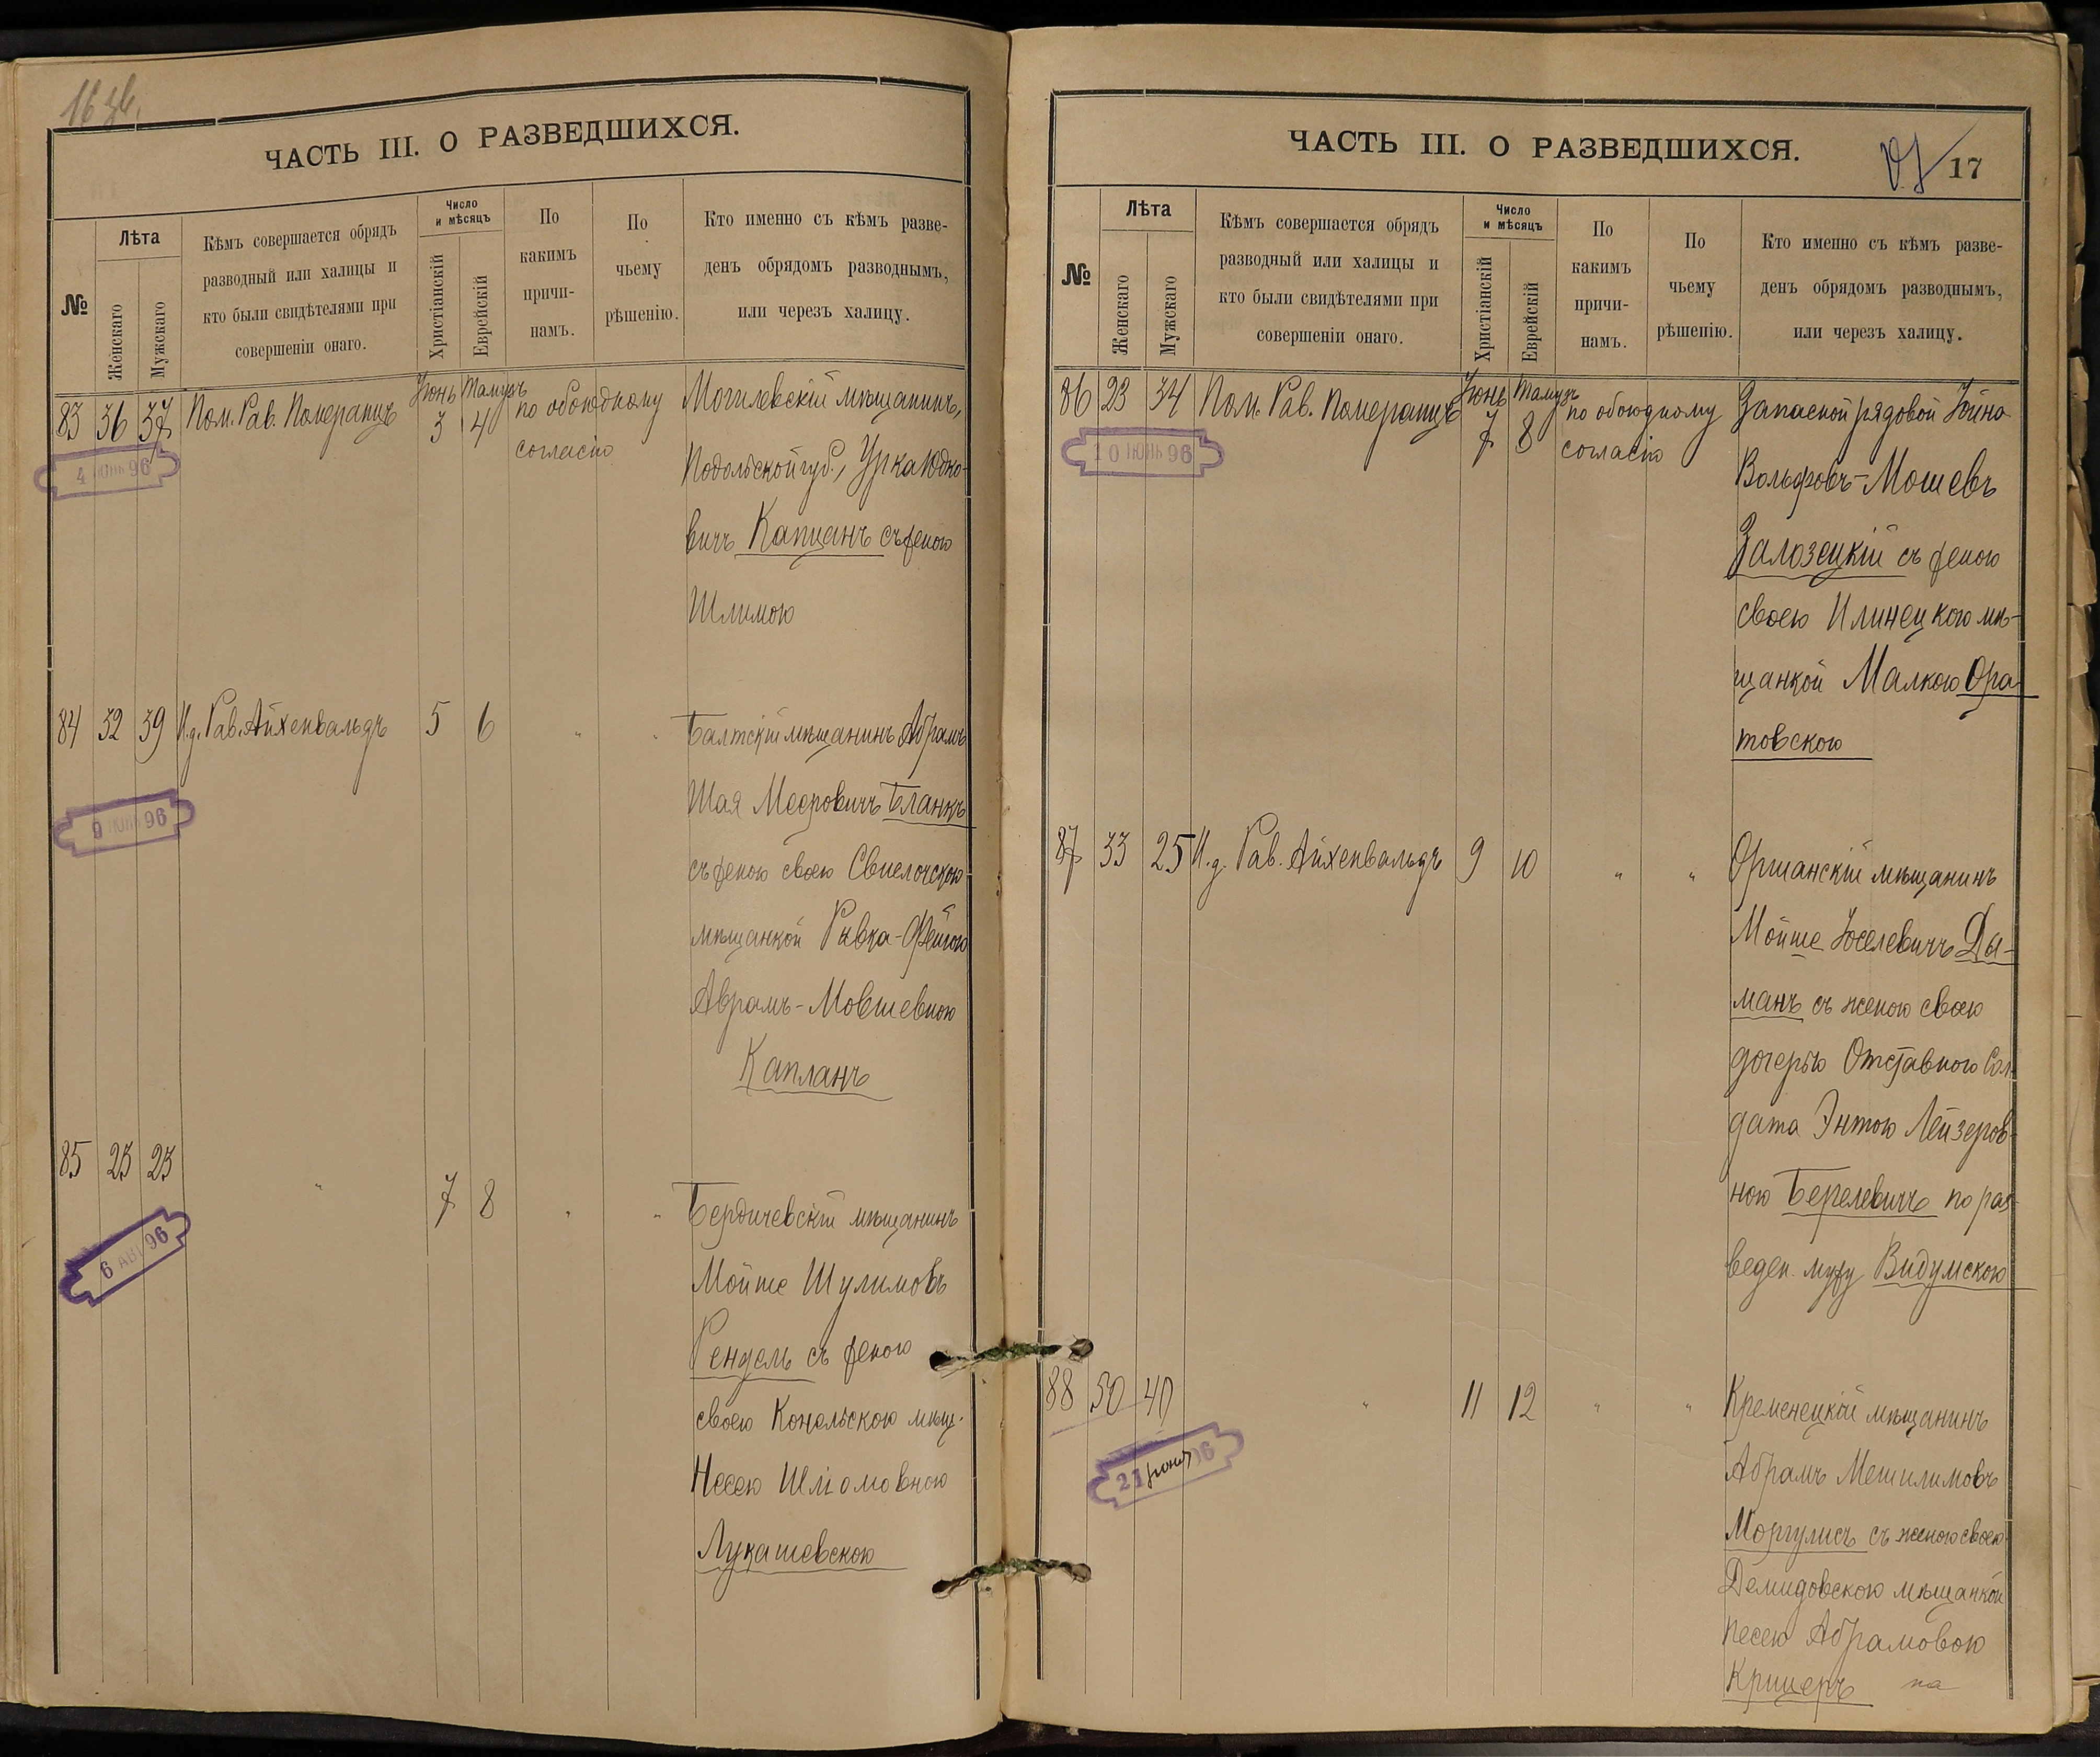 16 зв.
ЧАСТЬ III. О РАЗВЕДШИХСЯ.
№
Лѣта
Женскаго
Мужскаго
Кѣмъ совершается обрядъ
разводный или халицы и
кто были свидѣтелями при
совершеніи онаго.
Число
и мѣсяцъ
Христіанскій
Еврейскій
По
какимъ
причи-
намъ.
По
чьему
рѣшенію.
Кто именно съ кѣмъ разве-
денъ обрядомъ разводнымъ,
или черезъ халицу.
83 36 37 Пом. Рав. Померанцъ Іюнь 3 Тамузъ 4 по обоюдному
согласію
4 ІЮНЬ 96
Могилевскій мѣщанинъ,
Подольской губ., Урка Юдко-
вичъ Капцанъ съ женою
Шлимою
84 32 39 И.д. Рав. Айхенвальдъ 5 6 " "
9 96
Балтскій мѣщанинъ Абрамъ
Шая Мееровичъ Бланкъ
съ женою своею Свислочскою
мѣщанкой Ривка-Фейгою
Аврамъ-Мовшевною
Капланъ
85 23 23 " 7 8 " "
6 АВГ 96
Бердичевскій мѣщанинъ
Мойше Шулимовъ
Рендель съ женою
своею Конельскою мѣщ.
Несею Шліомовною
Лукашевскою
ЧАСТЬ III. О РАЗВЕДШИХСЯ.
17
№
Лѣта
Женскаго
Мужскаго
Кѣмъ совершается обрядъ
разводный или халицы и
кто были свидѣтелями при
совершеніи онаго.
Число
и мѣсяцъ
Христіанскій
Еврейскій
По
какимъ
причи-
намъ.
По
чьему
рѣшенію.
Кто именно съ кѣмъ разве-
денъ обрядомъ разводнымъ,
или черезъ халицу.
86 23 34 Пом. Рав. Померанцъ Іюнь 7 Тамузъ 8 по обоюдному
согласію
10 ІЮНЬ 96
Запасной рядовой Іойна
Вольфовъ-Мошевъ
Залозецкій съ женою
своею Илинецкою мѣ-
щанкой Малкою Ора-
товскою
87 33 25 И.д. Рав. Айхенвальдъ 9 10 " "
Оршанскій мѣщанинъ
Мойше Іоселевичъ Ды-
манъ съ женою своею
дочерью Отставного Сол-
дата Энтою Лейзеров-
ною Берелевичъ по раз-
веден. мужу Видумскою
88 50 40 " 11 12 " "
21 іюня 96
Кременецкій мѣщанинъ
Абрамъ Мешилимовъ
Моргулисъ съ женою своею
Демидовскою мѣщанкой
Песею Абрамовою
Крицеръ